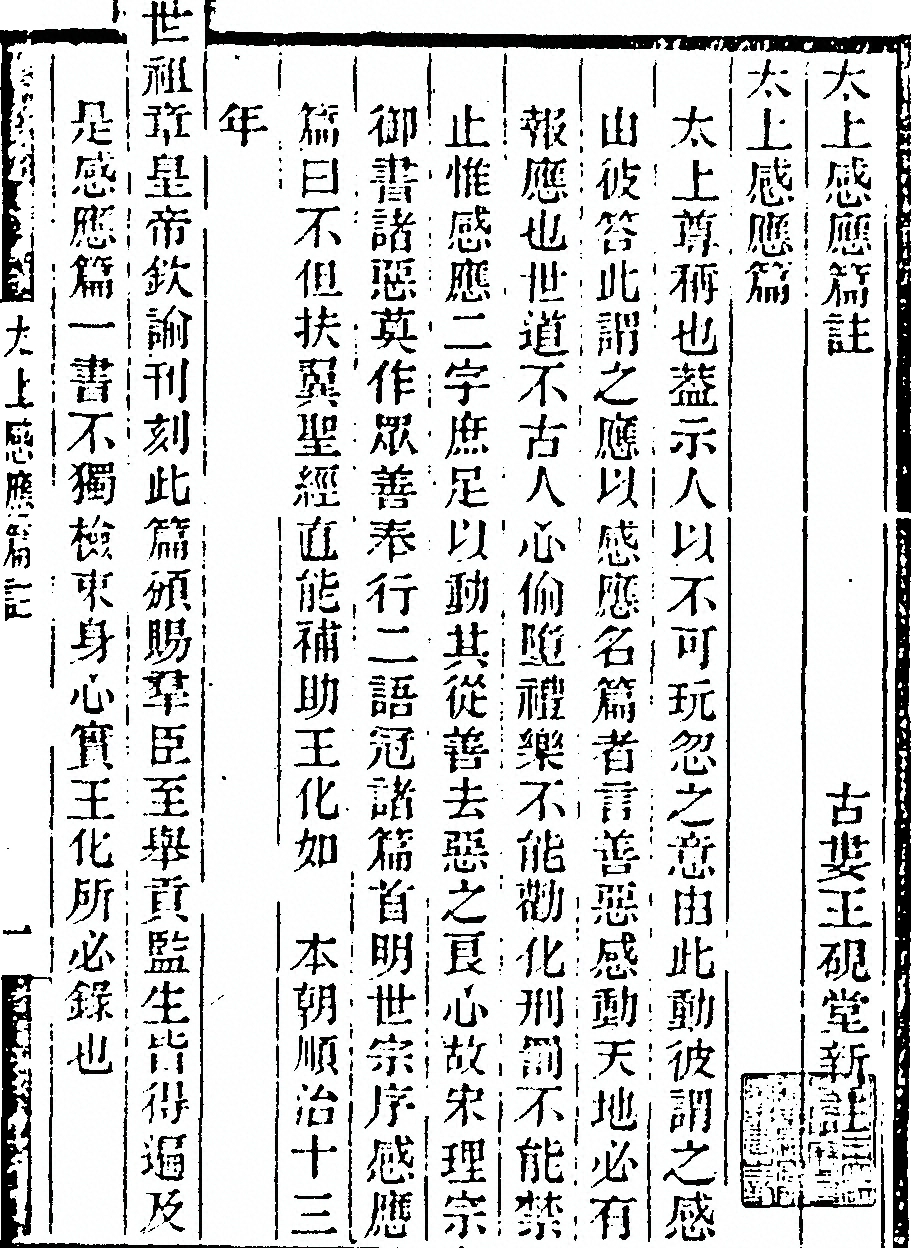 太上感應篇註
古婁王硯堂新註
太上感應篇
太上尊稱也葢示人以不可玩忽之意由此動彼謂之感
由彼答此謂之應以感應名篇者言善惡感動天地必有
報應也世道不古人心偷墮禮樂不能勸化刑罰不能禁
止惟感應二字庶足以動其從善去惡之良心故宋理宗
御書諸惡莫作眾善奉行二語冠諸篇首明世宗序感應
篇曰不但扶翼聖經直能補助王化如 本朝順治十三
年
世祖章皇帝欽諭刊刻此篇頒賜羣臣至舉貢監生皆得遍及
是感應篇一書不獨檢束身心實王化所必錄也
太上感應篇註
一